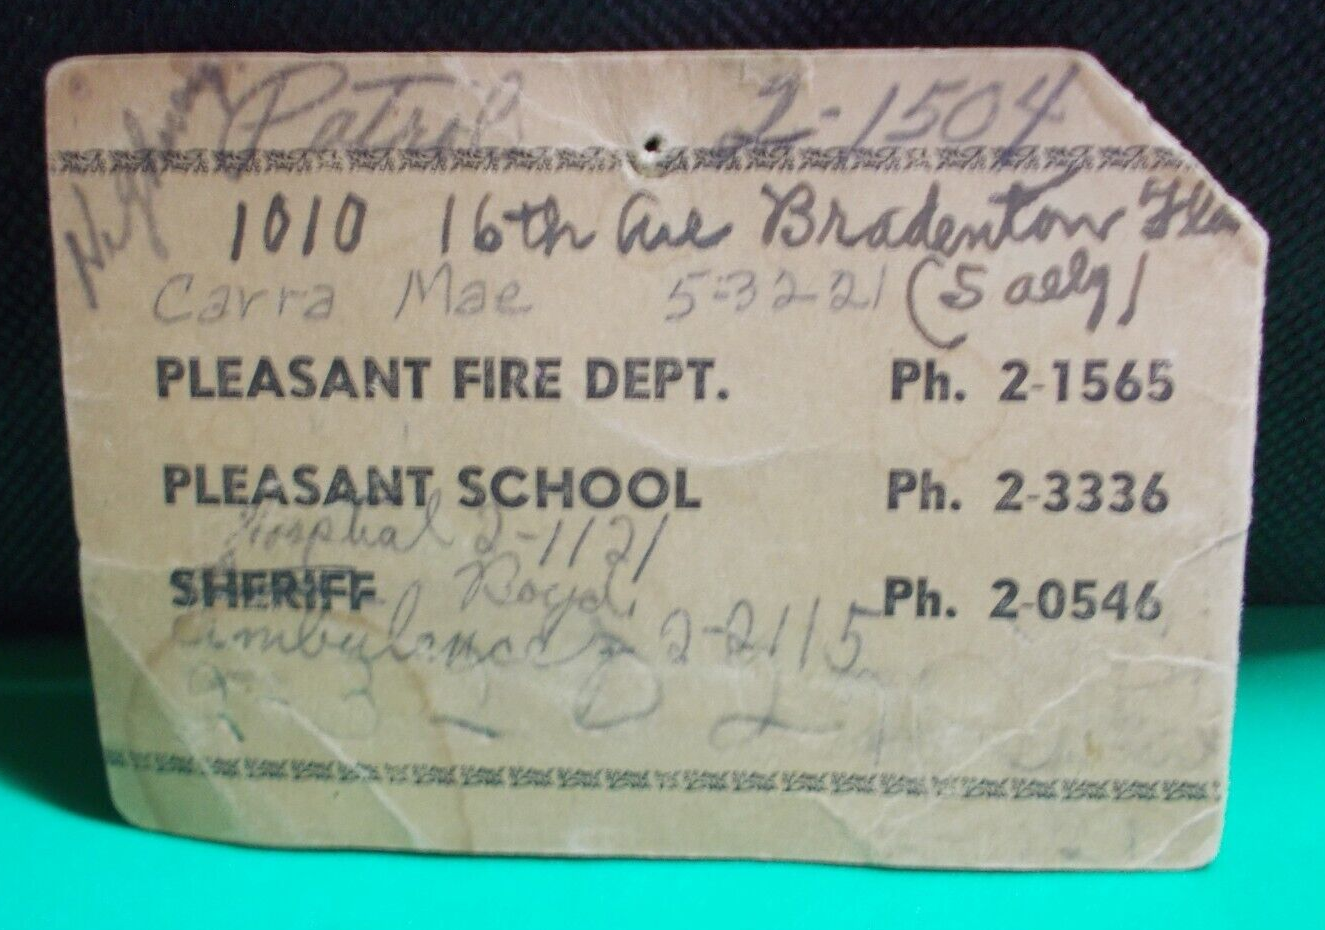 Highway Patrol 2-1504
1010 16th Ave Bradenton Fla
Carra Mae 5-32-21 (Sally)
PLEASANT FIRE DEPT. Ph. 2-1565
PLEASANT SCHOOL Ph. 2-3336
Hospital 2-1121
SHERIFF Boyd Ph. 2-0546
Ambulance 2-2115